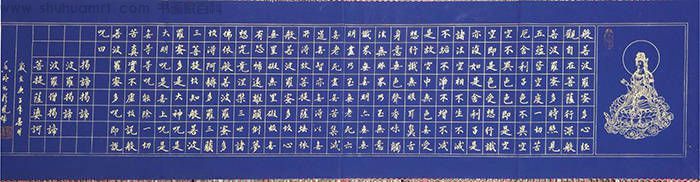 www.shuhuamrt.com 书画家百科
般若波羅蜜多心經
觀自在菩薩行深般
若波羅蜜多時照見
五蘊皆空度一切苦
厄舍利子色不異空
空不異色色即是空
空即是色受想行識
亦復如是舍利子是
諸法空相不生不滅
不垢不淨不增不減
是故空中無色無受
想行識無眼耳鼻舌
身意無色聲香味觸
法無眼界乃至無意
識界無無明亦無無
明盡乃至無老死亦
無老死盡無苦集滅
道無智亦無得以無
所得故菩提薩埵依
般若波羅蜜多故心
無罣礙無罣礙故無
有恐怖遠離顛倒夢
想究竟涅槃三世諸
佛依般若波羅蜜多
故得阿耨多羅三藐
三菩提故知般若波
羅蜜多是大神咒是
大明咒是無上咒是
無等等咒能除一切
苦真實不虛故說般
若波羅蜜多咒即說
咒曰
揭諦揭諦
波羅揭諦
波羅僧揭諦
菩提薩婆訶